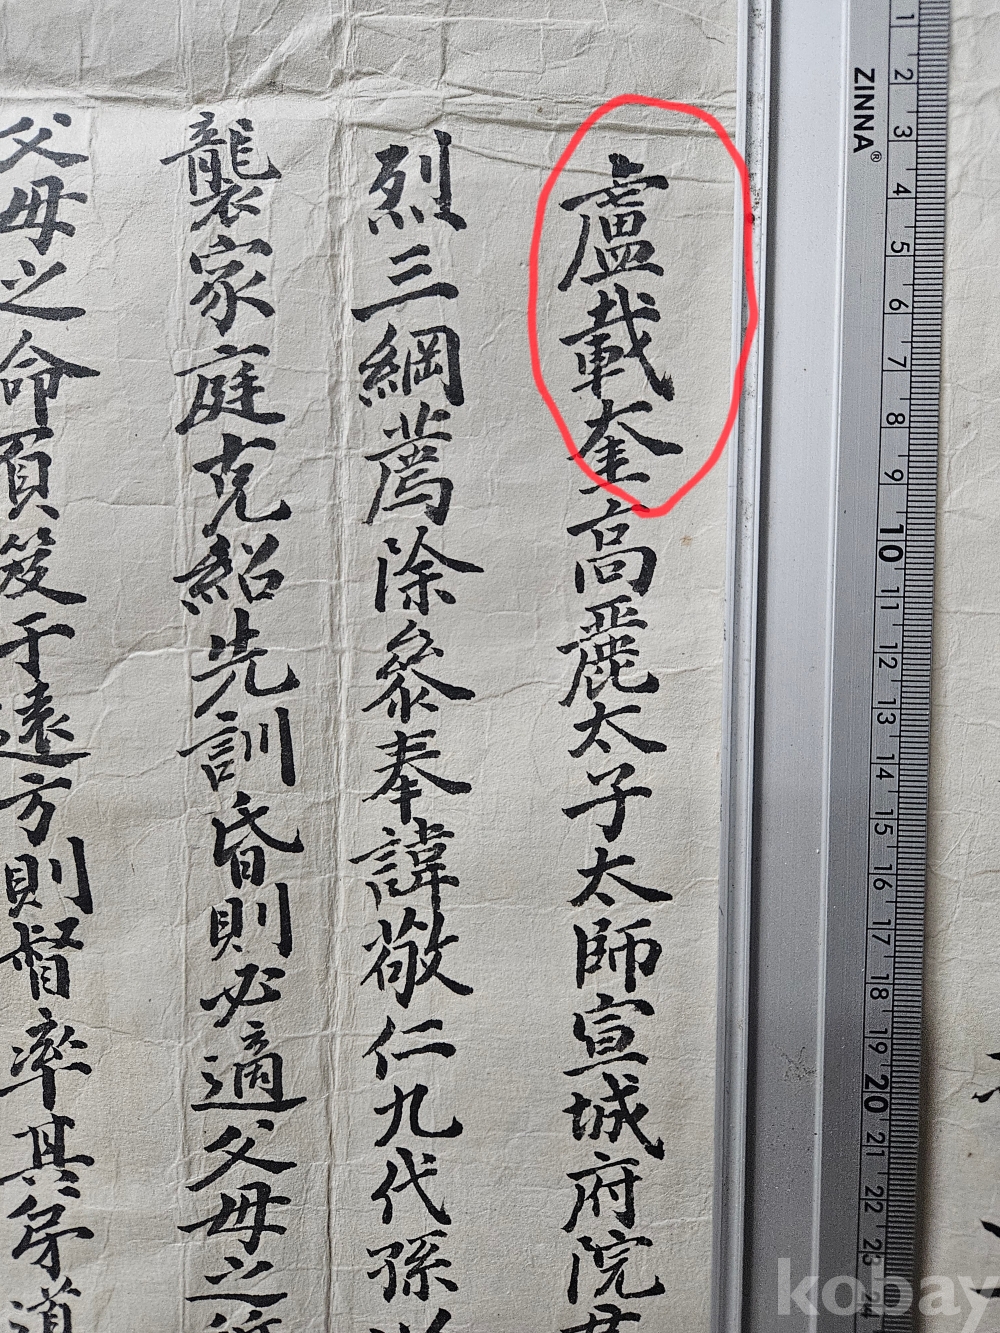 盧載奎高麗太子太師宣城府院君
烈三綱薦除參奉諱敬仁九代孫
襲家庭克紹先訓昏則必適父母之所
父母之命負笈于遠方則督率其弟道
ZINNA®
1 2 3 4 5 6 7 8 9 10 11 12 13 14 15 16 17 18 19 20 21 22 23 24
kobay